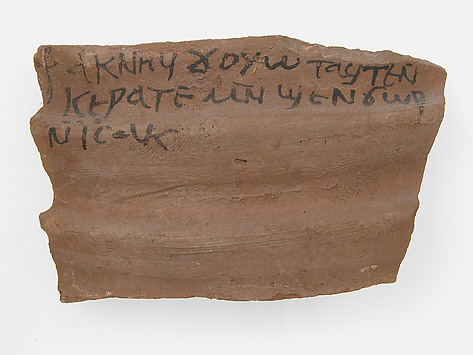 ⳨ ⲁⲕⲛⲏϥ ϫⲟⲩⲱ ⲧⲁϥⲧⲉⲛ
ⲕⲉⲣⲁⲧⲉ ⲙⲛ ϣⲉⲛϭⲱⲣ
ⲛⲓⲥⲁⲕ